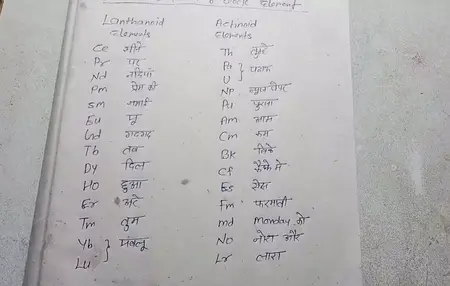 Block Element
Lanthanoid Actinoid
Elements Elements
Ce Th तुमने
Pr पर Pa } पलक
Nd नदियाँ U
Pm प्रेम की Np
Sm Pu पुराना
Eu यू Am आम
Gd गदगद Cm कम
Tb तब Bk बिके
Dy दिल Cf कैफे में
Ho हुआ Es ऐस
Er अरे Fm फरमाती
Tm तुम md monday को
Yb } पबलू No नोटा और
Lu Lr लारा